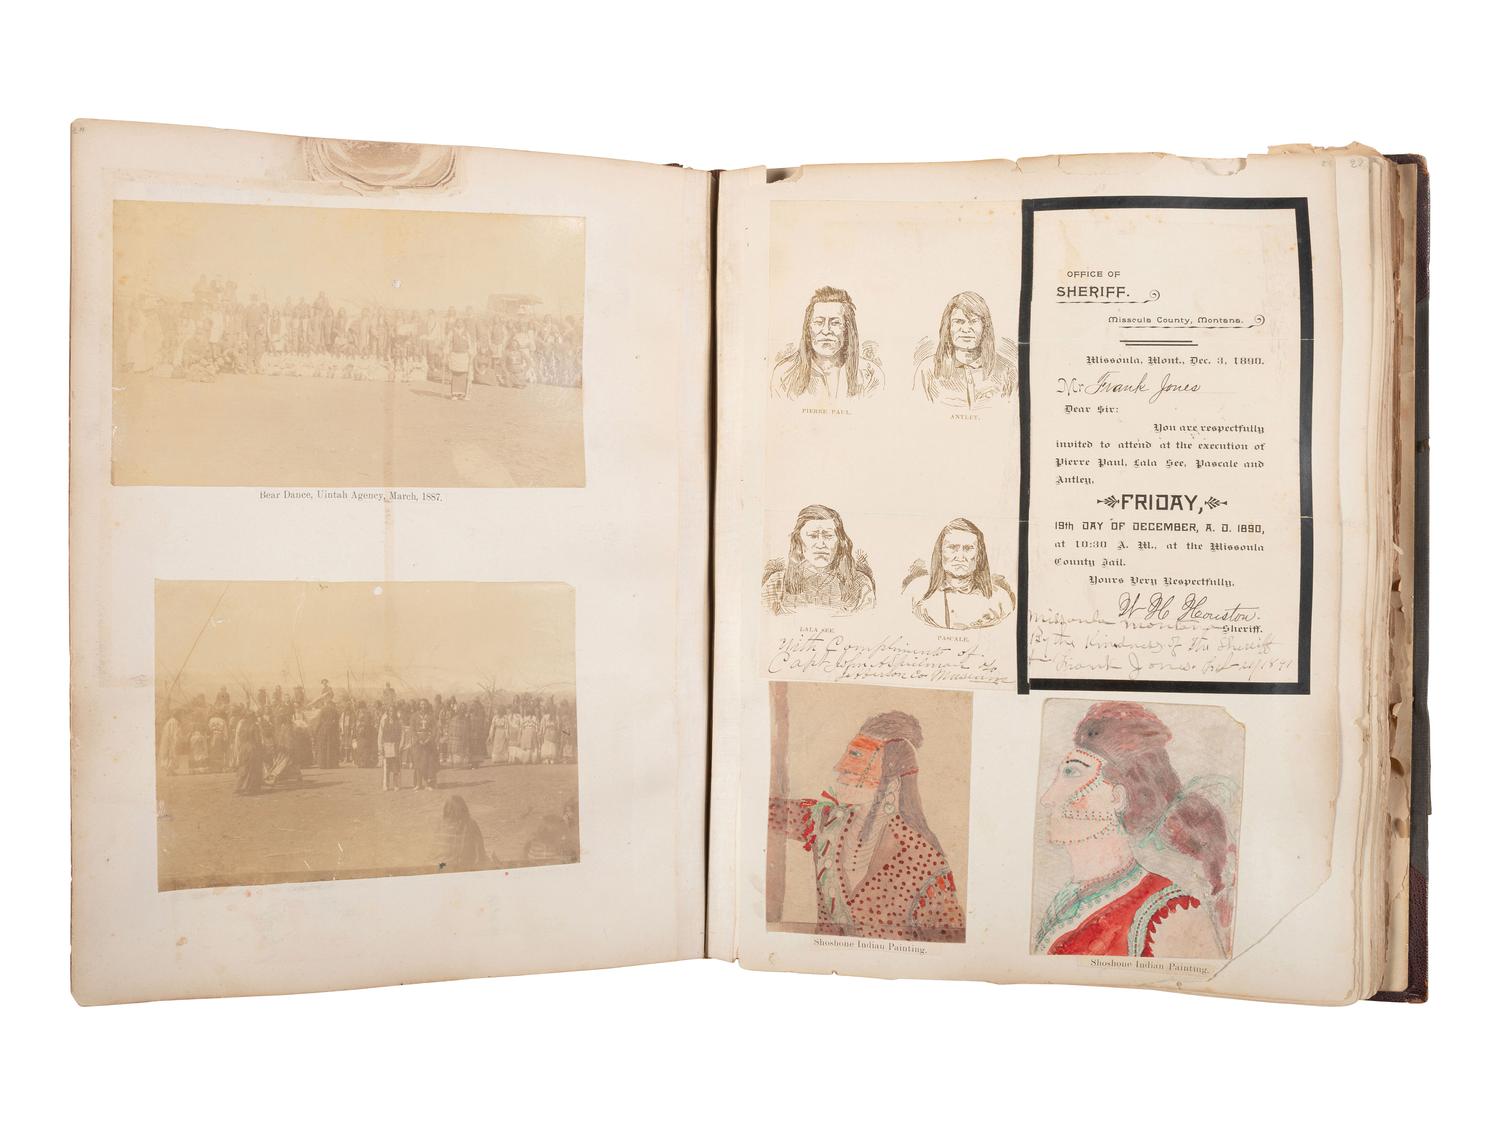 Bear Dance, Uintah Agency, March, 1887.
PIERRE PAUL.
ANTLEY.
LALA SEE.
PASCALE.
With Compliments of
Capt John A Spielman
Jefferson Co Museum
OFFICE OF
SHERIFF.
Missoula County, Montana.
Missoula, Mont., Dec. 3, 1890.
Mr Frank Jones
Dear Sir:
You are respectfully
invited to attend at the execution of
Pierre Paul, Lala See, Pascale and
Antley,
FRIDAY,
19th DAY OF DECEMBER, A. D. 1890,
at 10:30 A. M., at the Missoula
County Jail.
Yours Very Respectfully,
W H Houston
Sheriff.
Missoula Montana
By the Kindness of the Sheriff
to Frank Jones.
Shoshone Indian Painting.
Shoshone Indian Painting.